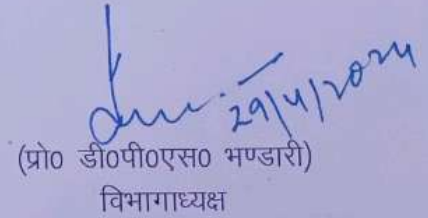 29/4/2024
(प्रो0 डी0पी0एस0 भण्डारी)
विभागाध्यक्ष